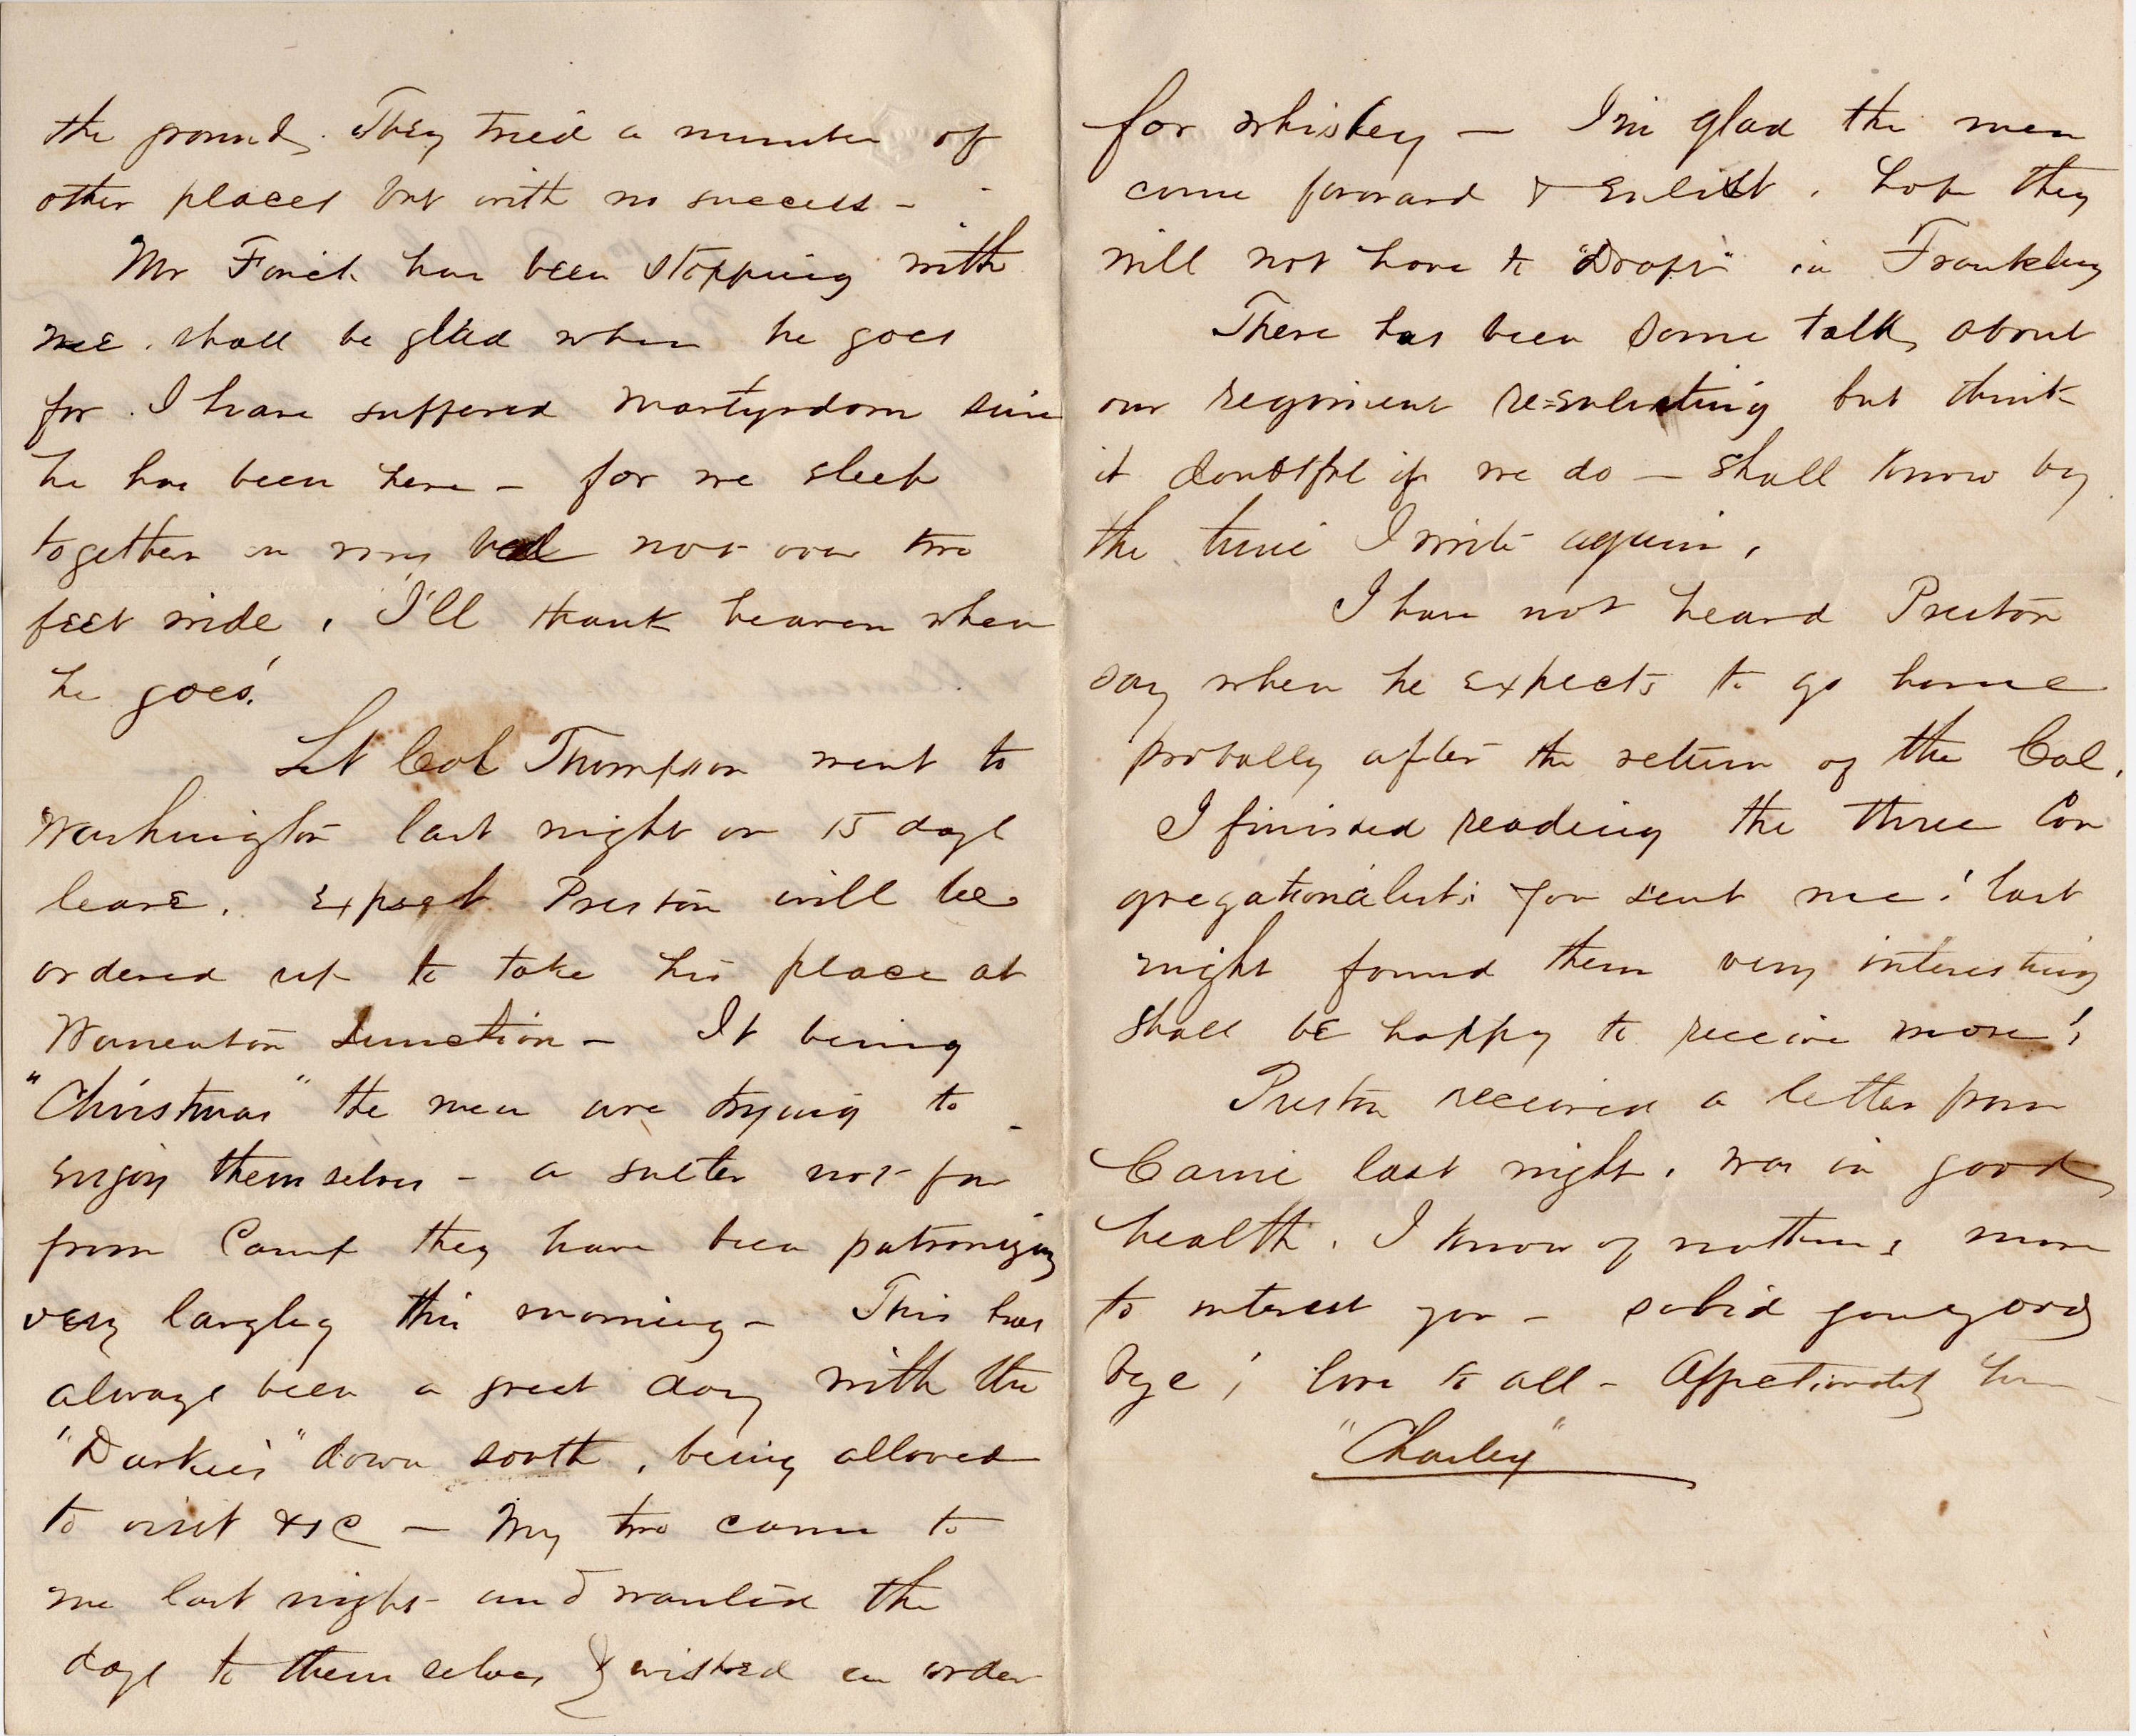 the ground. They tried a number of
other places but with no success -
Mr Forick has been stopping with
me. shall be glad when he goes
for. I have suffered martyrdom since
he has been here - for we sleep
together on my bed not over two
feet wide. I'll thank heaven when
he goes!
Lt Col Thompson went to
Washington last night on 15 days
leave. Expect Preston will be
ordered up to take his place at
Warrenton Junction - It being
"Christmas" the men are trying to
enjoy themselves - a sutler not far
from Camp they have been patronizing
very largley this morning - This has
always been a great day with the
"Darkies" down south, being allowed
to visit &c - My two came to
me last night and wanted the
day to themselves & wished an order
for whiskey - I'm glad the men
come forward & enlist. hope they
will not have to "Draft" in Franklin
There has been some talk about
our regiment re=enlisting but think
it doubtful if we do - shall know by
the time I write again.
I have not heard Preston
say when he expects to go home
probally after the return of the Col.
I finished reading the three Con
gregationalists you sent me! last
night found them very interesting
shall be happy to receive more!
Preston received a letter from
Carrie last night. was in good
health. I know of nothing more
to interest you - so bid you good
bye! love to all - Affectionately
"Charley"